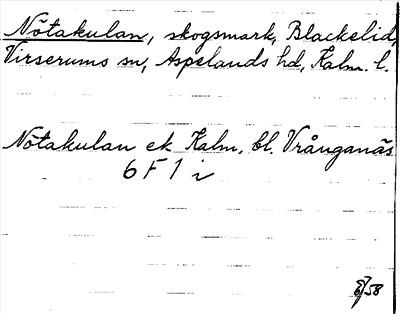 Nötakulan, skogsmark, Blackelid,
Virserums sn, Aspelands hd, Kalm. l.
Nötakulan ek Kalm. bl. Vrånganäs
6 F 1 i